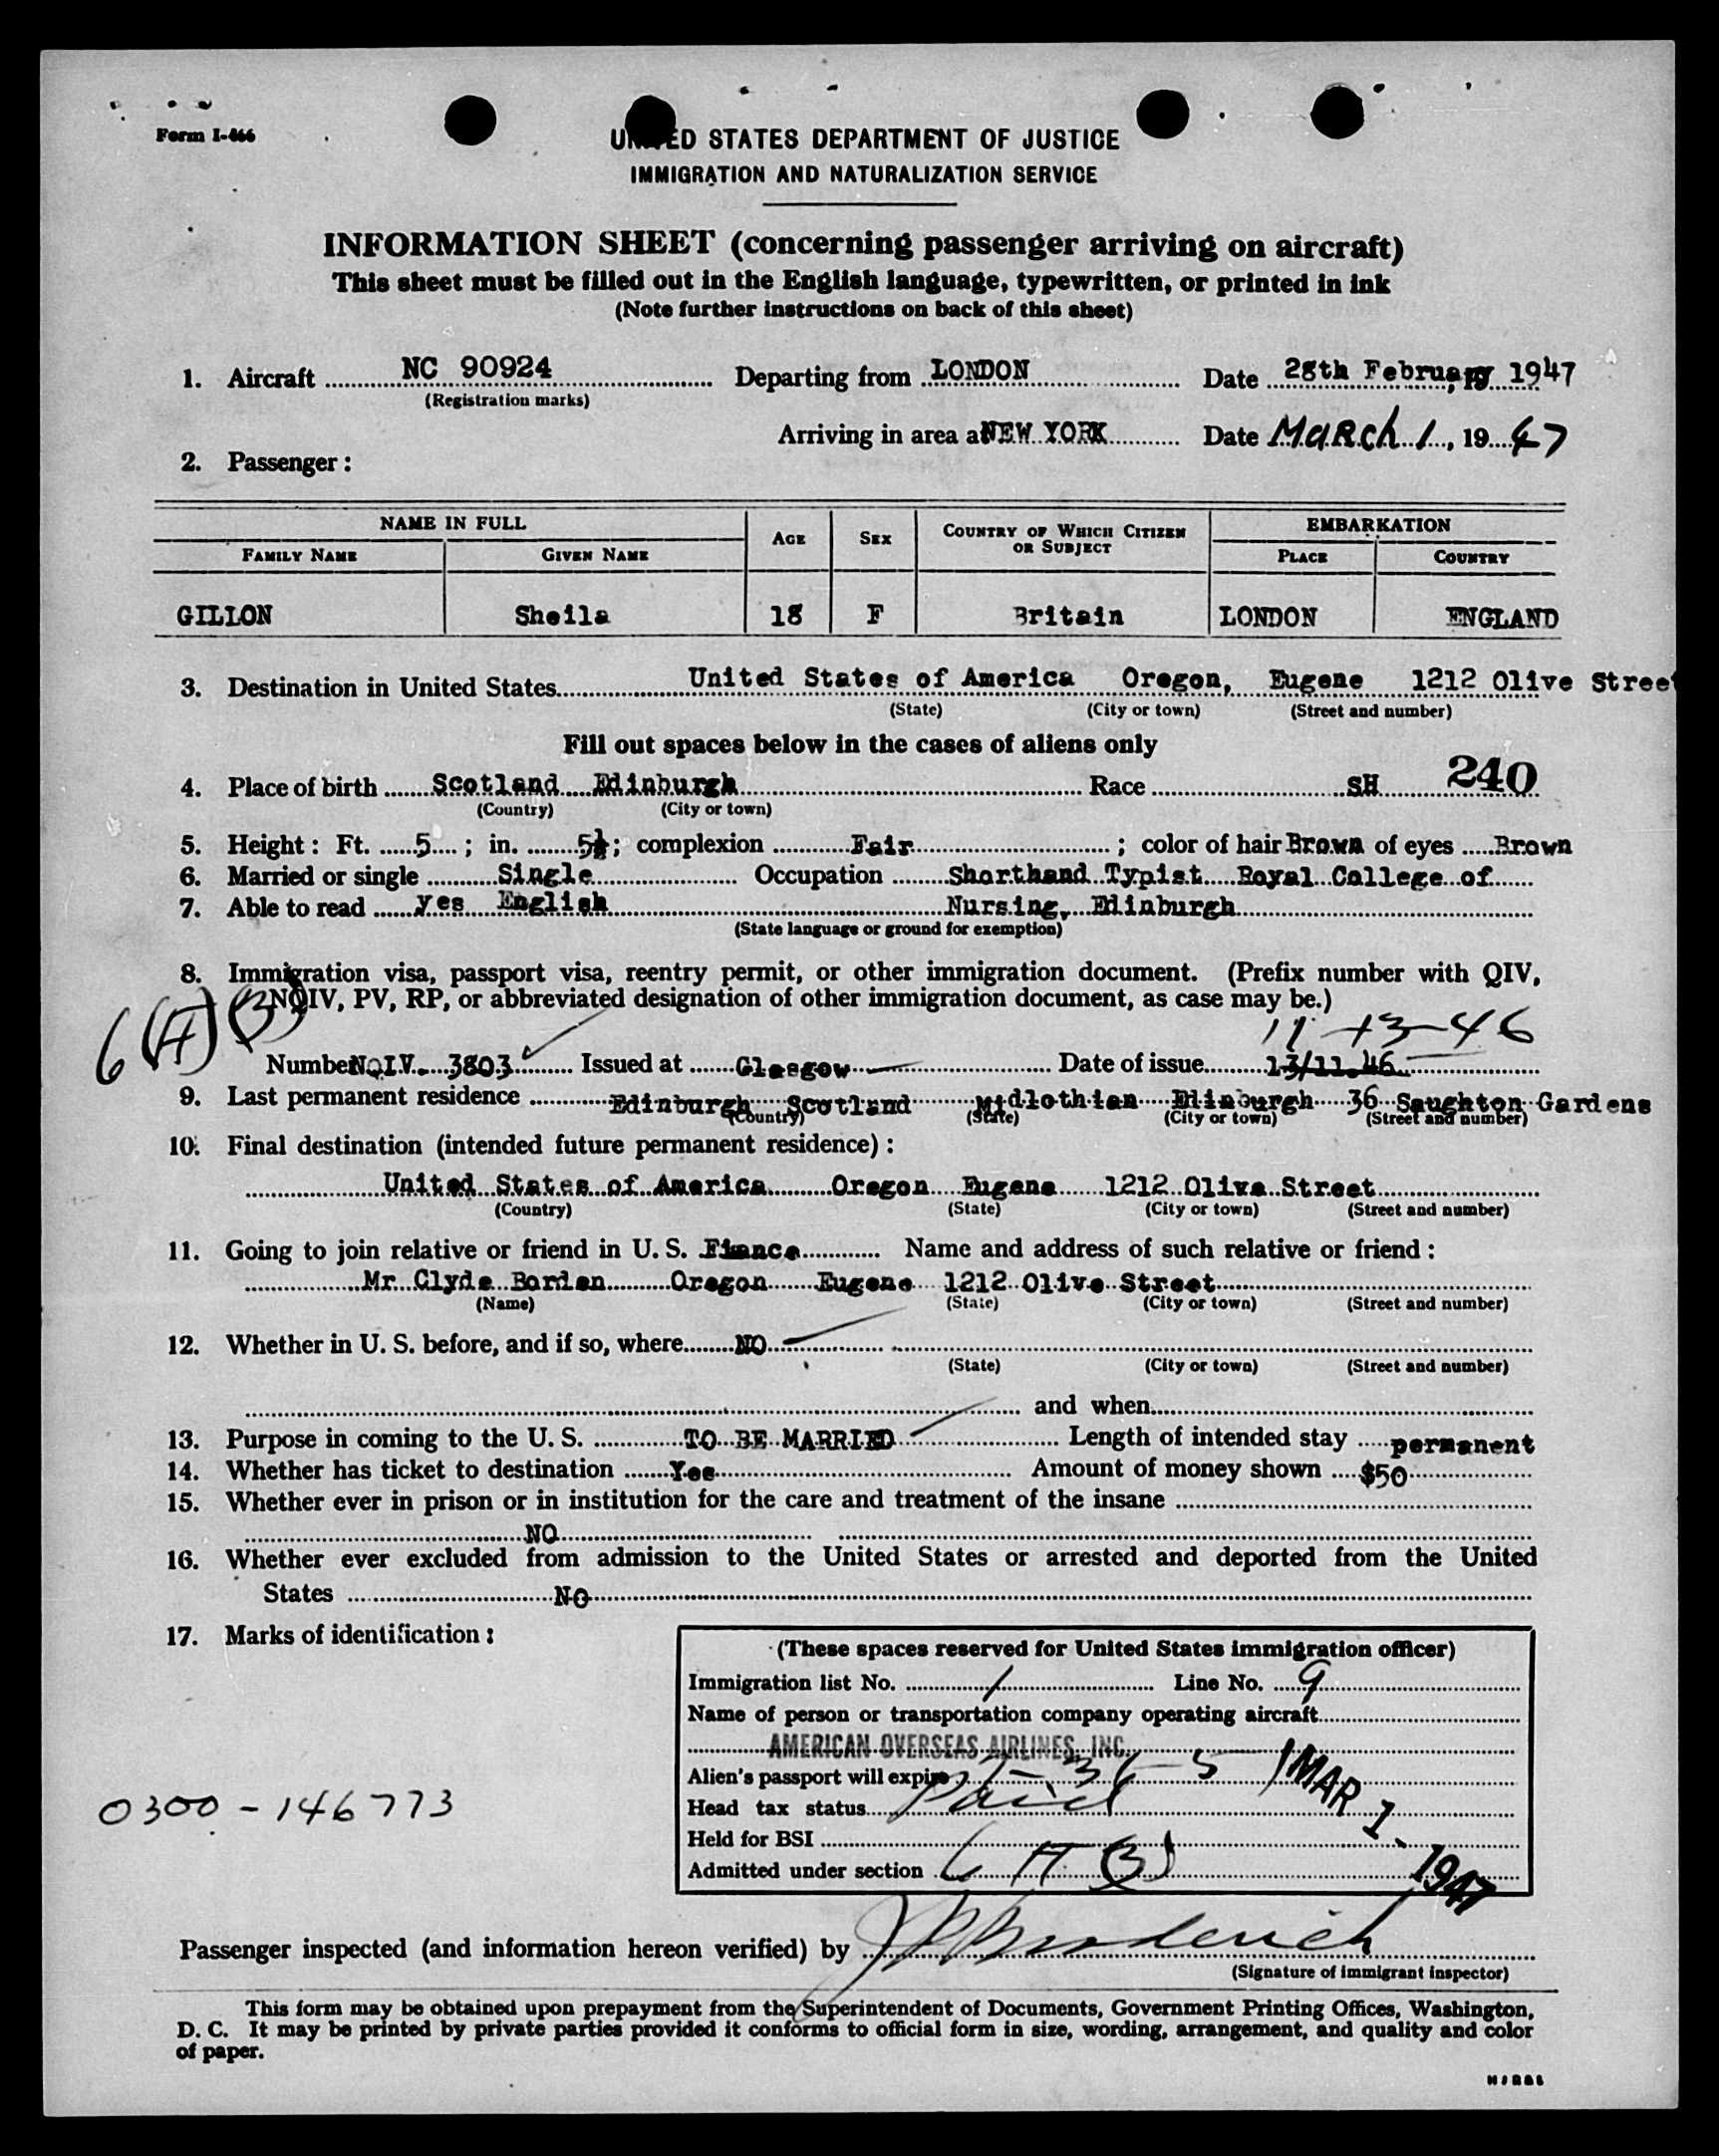 Form I-466
UNITED STATES DEPARTMENT OF JUSTICE
IMMIGRATION AND NATURALIZATION SERVICE
INFORMATION SHEET (concerning passenger arriving on aircraft)
This sheet must be filled out in the English language, typewritten, or printed in ink
(Note further instructions on back of this sheet)
1. Aircraft NC 90924 Departing from LONDON Date 28th February, 19 1947
(Registration marks)
Arriving in area at NEW YORK Date MARCh 1, 1947
2. Passenger:
NAME IN FULL AGE SEX COUNTRY OF WHICH CITIZEN OR SUBJECT EMBARKATION
FAMILY NAME GIVEN NAME PLACE COUNTRY
GILLON Sheila 18 F Britain LONDON ENGLAND
3. Destination in United States United States of America Oregon, Eugene 1212 Olive Street
(State) (City or town) (Street and number)
Fill out spaces below in the cases of aliens only
4. Place of birth Scotland Edinburgh Race SH 240
(Country) (City or town)
5. Height: Ft. 5; in. 5½; complexion Fair; color of hair Brown of eyes Brown
6. Married or single Single Occupation Shorthand Typist Royal College of
7. Able to read Yes English Nursing, Edinburgh
(State language or ground for exemption)
8. Immigration visa, passport visa, reentry permit, or other immigration document. (Prefix number with QIV,
NQIV, PV, RP, or abbreviated designation of other immigration document, as case may be.)
6(A)(3) 11-13-46
Number NQIV. 3803 Issued at Glasgow Date of issue 13/11.46
9. Last permanent residence Edinburgh Scotland Midlothian Edinburgh 36 Saughton Gardens
(Country) (State) (City or town) (Street and number)
10. Final destination (intended future permanent residence):
United States of America Oregon Eugene 1212 Olive Street
(Country) (State) (City or town) (Street and number)
11. Going to join relative or friend in U. S. Fiance Name and address of such relative or friend:
Mr Clyde Borden Oregon Eugene 1212 Olive Street
(Name) (State) (City or town) (Street and number)
12. Whether in U. S. before, and if so, where NO
(State) (City or town) (Street and number)
and when
13. Purpose in coming to the U. S. TO BE MARRIED Length of intended stay permanent
14. Whether has ticket to destination Yes Amount of money shown $50
15. Whether ever in prison or in institution for the care and treatment of the insane
NO
16. Whether ever excluded from admission to the United States or arrested and deported from the United
States NO
17. Marks of identification:
(These spaces reserved for United States immigration officer)
Immigration list No. 1 Line No. 9
Name of person or transportation company operating aircraft
AMERICAN OVERSEAS AIRLINES, INC.
Alien's passport will expire
MAR 1 1947
Head tax status Paid
0300-146773
Held for BSI
Admitted under section 6 A (3)
Passenger inspected (and information hereon verified) by
(Signature of immigrant inspector)
This form may be obtained upon prepayment from the Superintendent of Documents, Government Printing Offices, Washington,
D. C. It may be printed by private parties provided it conforms to official form in size, wording, arrangement, and quality and color
of paper.